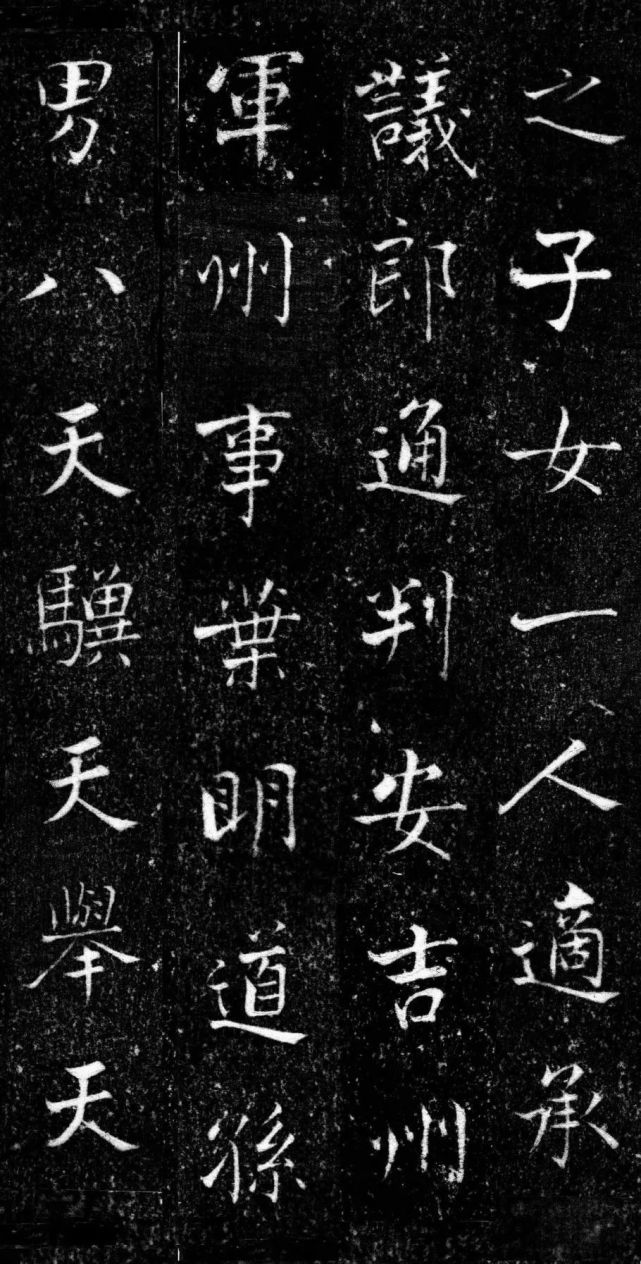 之子女一人適承
議郎通判安吉州
軍州事葉明道孫
男八天驥天舉天